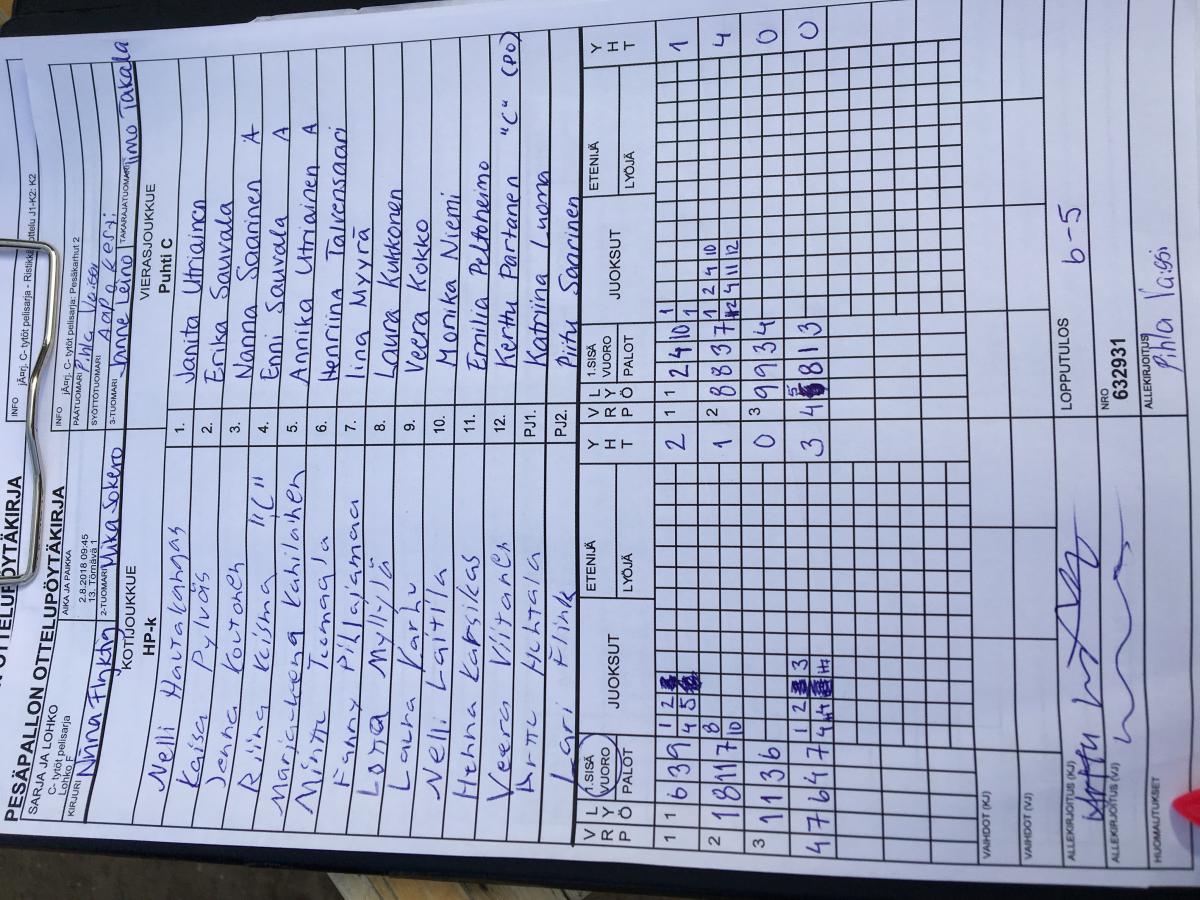 PESÄPALLON OTTELUPÖYTÄKIRJA
SARJA JA LOHKO
C- tytöt pelisarja
Lohko F
AIKA JA PAIKKA
2.8.2018 09:45
13. Törnävä 1
INFO jÄ¤rj. C- tytöt pelisarja: Pesäkarhut 2
PÄÄTUOMARI Pihla Vaissi
KIRJURI Niina
2-TUOMARI Mika Sokero
SYÖTTÖTUOMARI
3-TUOMARI Janne Laino
TAKARAJATUOMARI Timo Takala
KOTIJOUKKUE
HP-k
VIERASJOUKKUE
Puhti C
Nelli Hautakangas 1. Janita Utriainen
Kaisa Pylväs 2. Erika Sauvala
Jenna Koutonen 3. Nanna Saarinen A
Riina Keisma "C" 4. Enni Sauvala A
5. Annika Utriainen A
Minttu Teemaala 6. Henriina Talvensaari
Fanny Pihlajamaa 7. Iina Myyrä
Lotta Myllylä 8. Laura Kukkonen
Laura Karhu 9. Veera Kokko
Nelli Laitila 10. Monika Niemi
Henna Karsikas 11. Emilia Peltoheimo
Veera Viitanen 12. Kerttu Partanen "C" (PO)
Arttu Huhtala PJ1. Katriina Luoma
Lari Flink PJ2. Piitu Saarinen
V R P L Y Ö 1.SISÄ VUORO PALOT JUOKSUT ETENIJÄ LYÖJÄ Y H T V R P L Y Ö 1.SISÄ VUORO PALOT JUOKSUT ETENIJÄ LYÖJÄ Y H T
1 1 6 3 9 1 2 2 1 1 2 4 10 1 1
4 5 1
2 1 8 11 7 8 1 2 8 8 3 7 1 2 4 10 4
10 4 11 12
3 11 3 6 0 3 9 9 3 4 0
4 7 6 4 7 1 2 3 3 4 5 8 1 3 0
VAIHDOT (KJ)
VAIHDOT (VJ)
ALLEKIRJOITUS (KJ)
LOPPUTULOS 6-5
ALLEKIRJOITUS (VJ)
NRO
632931
HUOMAUTUKSET
ALLEKIRJOITUS
Pihla Vaissi